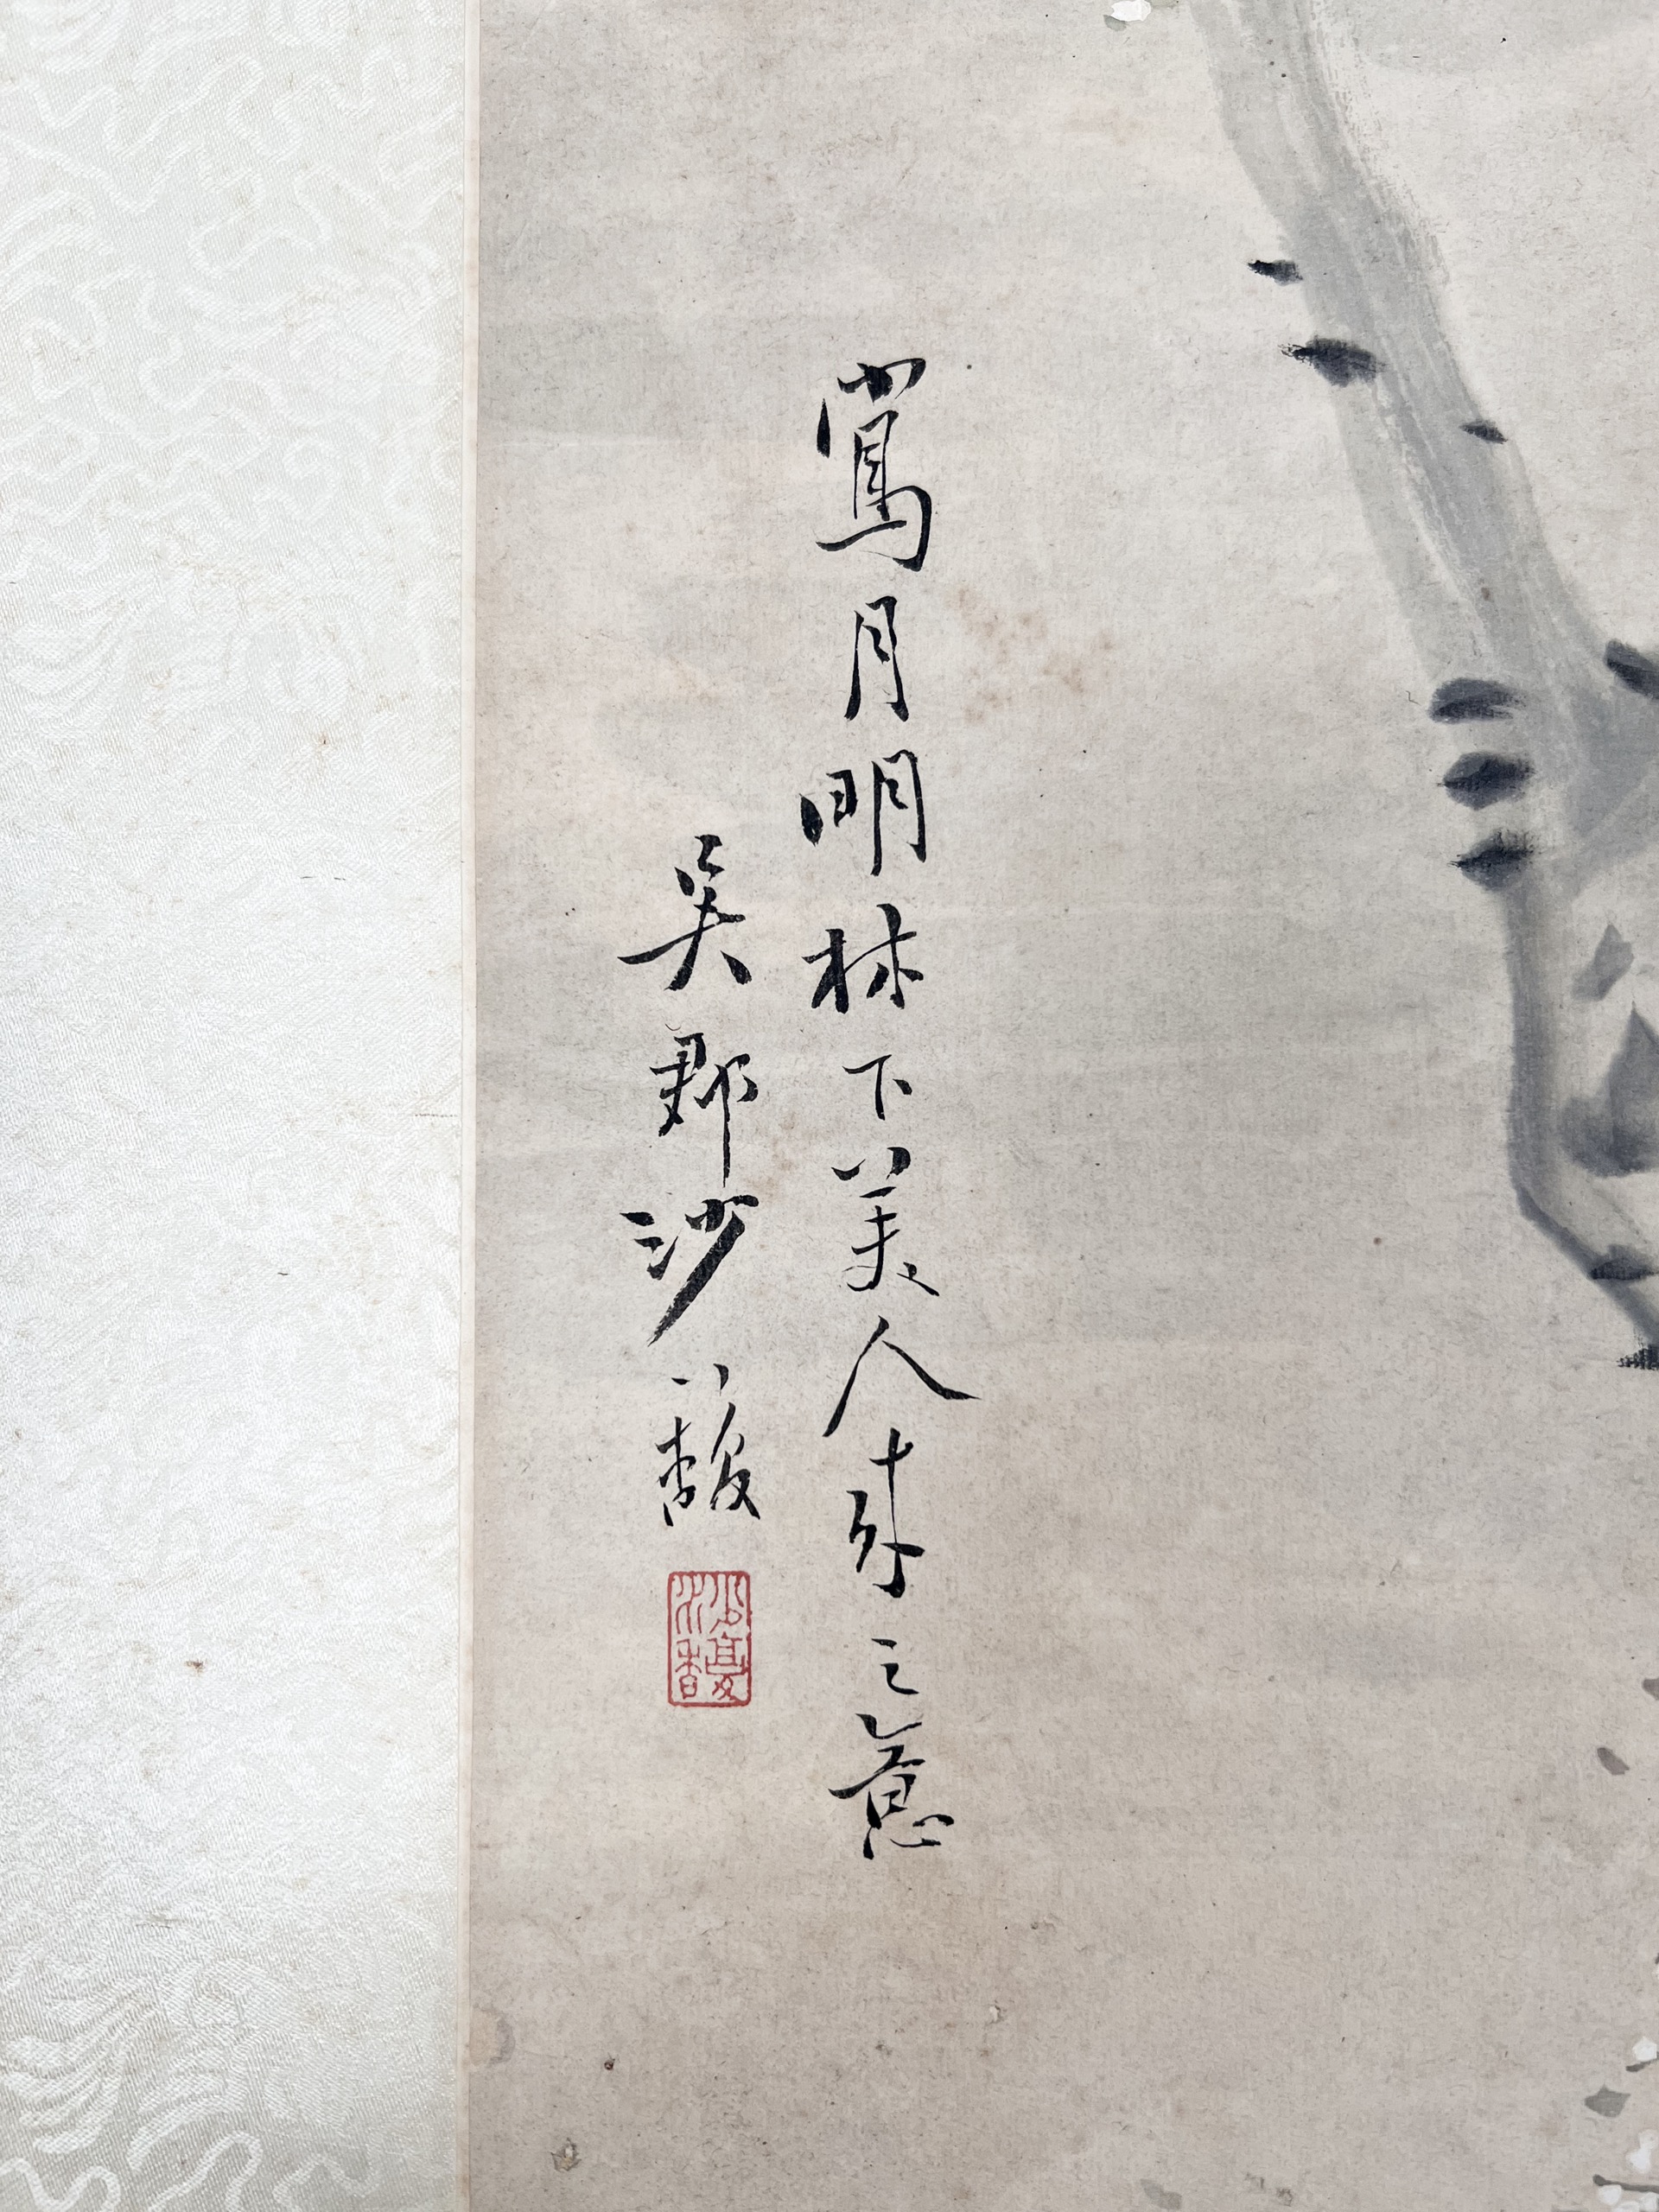 寫月明林下美人來之意
吳郡沙馥
沙馥